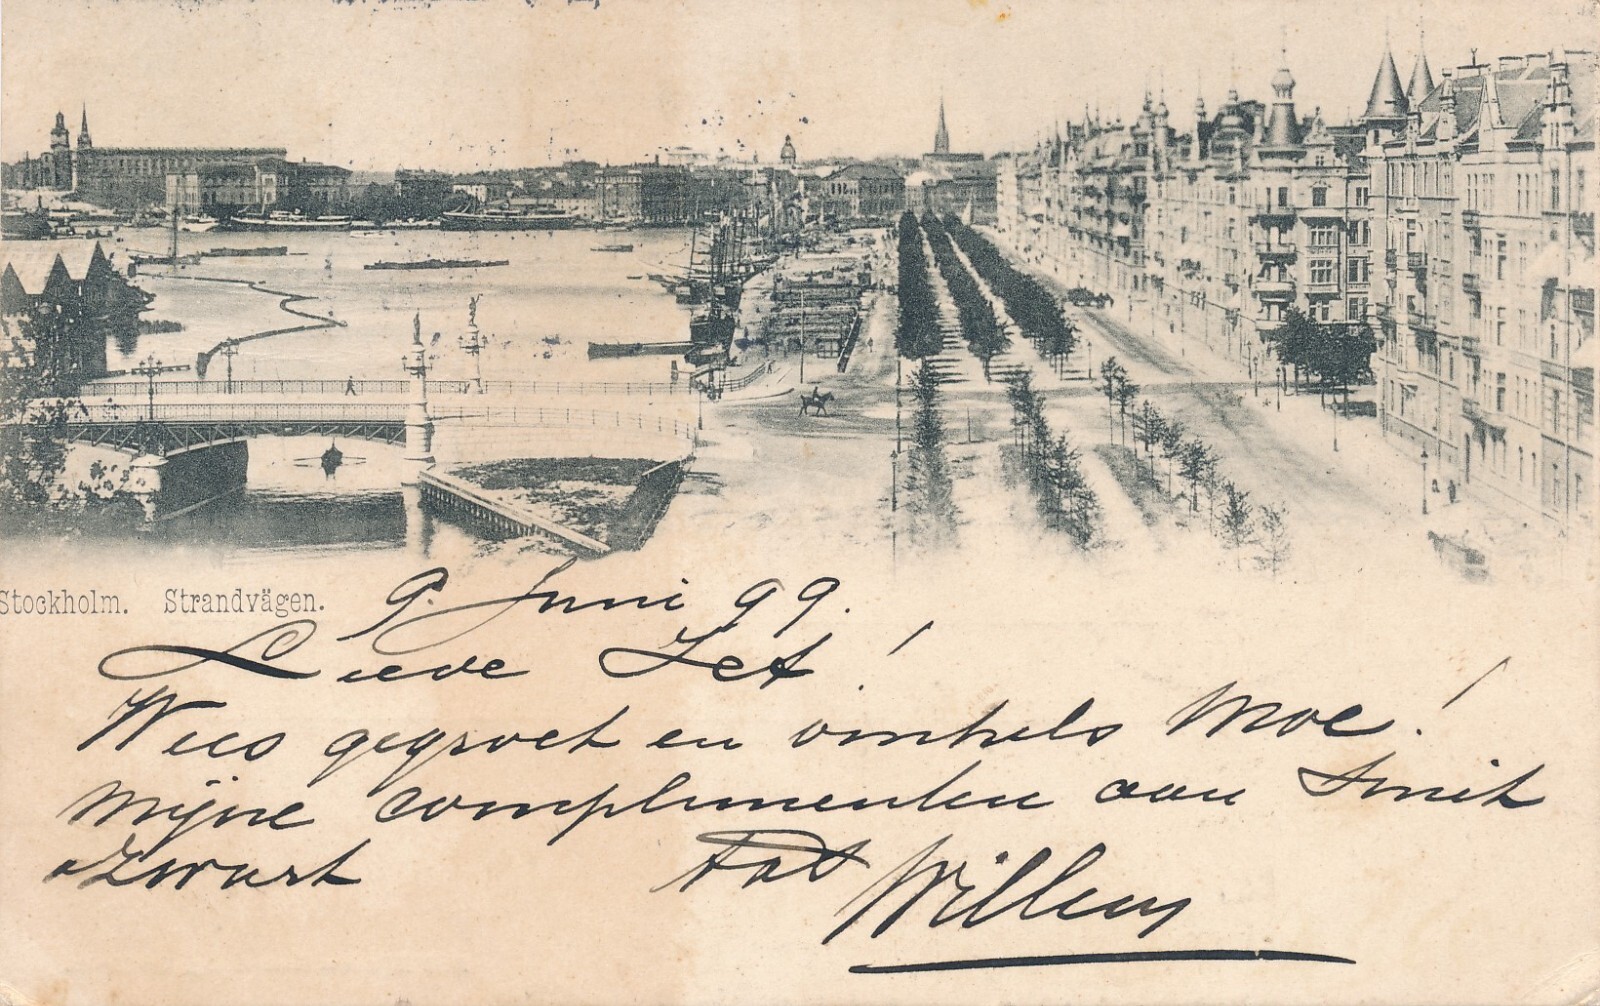 Stockholm. Strandvägen.
9. Juni 99.
Lieve Jet!
Wees gegroet en omhels Moe!
Mijne complimenten aan Smit
Zwart
Willem